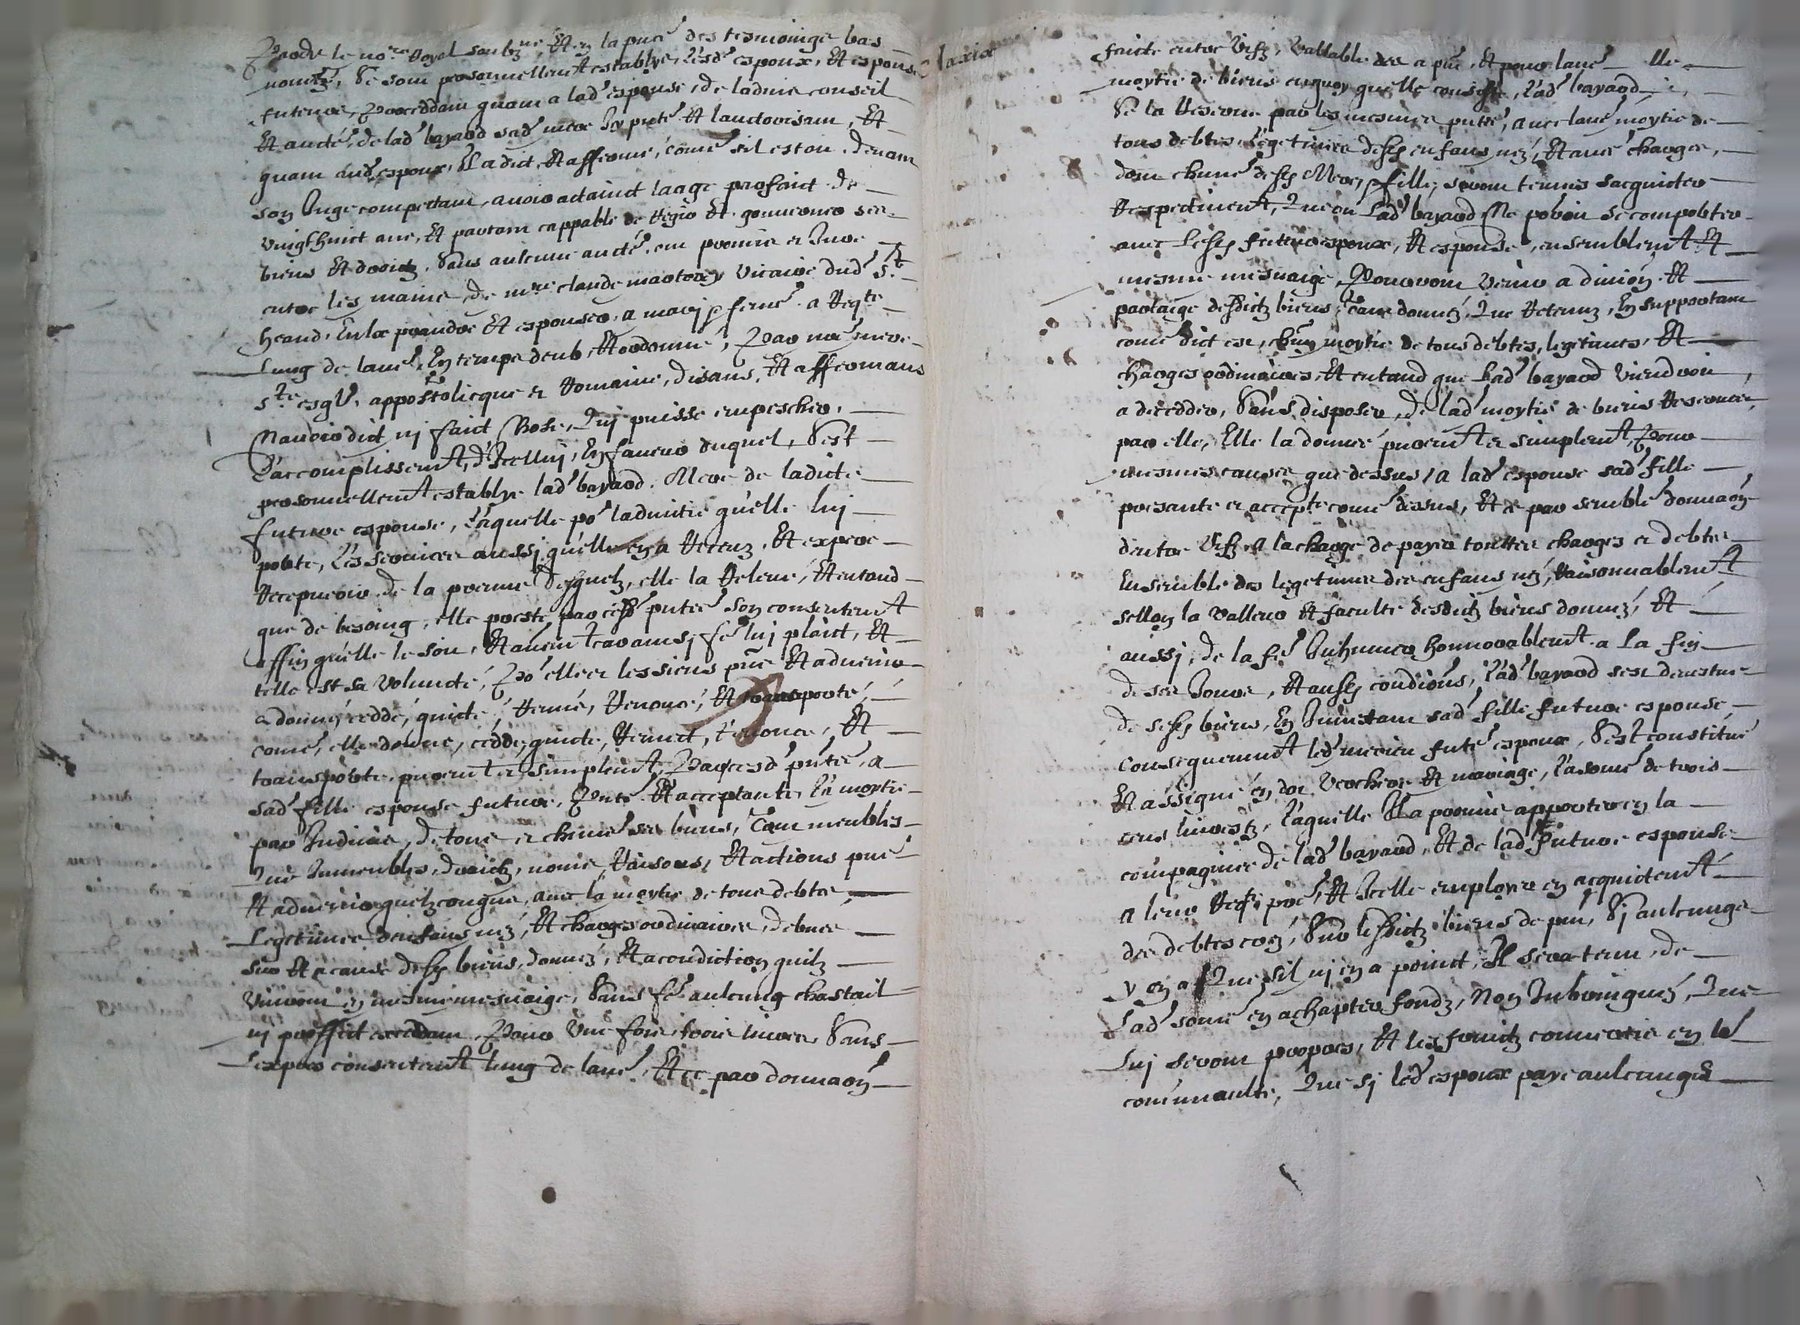 Pardt le nore Royal soubzne, Et en la pnce des tesmoingz bas
nomez, Se sont personnellement establys, Lesd espoux, Et espouse
future, Proceddant quant a lad espouse, de ladvis conseil
Et aucte, de lad bayard sad mere Icy pnte Et laucthorisant, Et
quant aud espoux, Il a dict, Et afferme, come sil estoit devant
son Juge competant, avoir attainct laage parfaict de
vingthuict ans, Et partant cappable de Regir Et gouverner ses
biens Et droictz, Sans aulcune aucte, ont promis et Jure
entre les mains, de mre claude vicaire dud St
heand, Eulx prandre Et espouser, a mary, & feme, a Reqte
Lung de laue, En temps deub, Et ordonne, Par nre mere
Ste esglize appostolicque et Romaine, disans, Et affermans
Navoir dict, nj faict Chose, Quj puisse empescher,
Laccomplissement, d'Icelluj, En faveur duquel, Sest
personnellement establye lad bayard, Mere de ladicte
future espouse, Laquelle po lamitie qu'elle luj
porte, Les services aussj qu'elle en a Receuz, Et espere
Recepvoir, de la preuve desquelz, elle la Releve, Et entand
que de besoing, elle preste, par ces pntes son consentement
affin qu'elle le soit, Et a luj plaict, Et
telle est sa volunte, Po elle et les siens pns Et advenir
a donne, cedde, quicte, Remis, Renonce, Et transporte,
come, elle donne, cedde, quicte, Remect, renonce, Et
transporte, purement et simplement, Par cesd pntes, a
sad fille espouse future, Pnte Et acceptante, La moytie
par Indivis, de tous et chuns ses biens, Tant meubles
Que Immeubles, droictz, noms, Raisons, Et actions pns
Et advenir quelzconques, avec la moytie de tous debtes,
Legetimes denfans nez, Et charges ordinaires, deues
sur Et a cause desd biens, donnez, Et a condiction quilz
vivront en mesme mesnaige, Sans aulcung chastail
nj proffict, Pour une fois, trois livres, Sans
Lexpres consentement lung de laue, Et ce par donnaon
faicte entre vifz, vallable des a pnt, Et pour laue
moytie de biens en quoy quelle consiste, Lad bayard
Se la Reserve par les mesmes pntes, avec laue moytie de
tous debtes, Legetimes desd enfans nez, Et aues charges,
dont chune desd Mere, & fille, seront tenues sacquicter
Respectivement, Que ou Lad bayard Ne pourroit se comporter
avec lesd futurs espoux, Et espouse, ensemblement Et
mesme mesnaige, Pourront venir a division Et
partaige desdictz biens, Tant donnez, Que Retenuz, En supportant
come dict est, chun moytie de tous debtes, legetimes, Et
charges ordinaires, Et entand que Lad bayard viendroit,
a decedder, Sans disposer, de lad moytie de biens Reservee,
par elle, Elle la donne purement et simplement, Pour
mesmes causes que dessus, a lad espouse sad fille
presante et acceptante come dessus, Et ce par semble donnaon
dentre vifz, A la charge de payer touttes charges et debtes
Ensemble des legetimes des enfans nez, Raisonnablement
sellon la valleur Et faculte desdictz biens donnez, Et
aussj, de la fe Inhumer honnorablement a La fin
de ses Jours, Et ausd condions, Lad bayard sest devestue
de sesd biens, En Investant sad fille future espouse
consequemment led futr espoux, Sest constitue
Et assigne en dot Verchere Et mariage, La some de trois
cens livres tz, Laquelle Il a promis apporter en la
compagnie de lad bayard, Et de lad future espouse
a leur Reqe poe, Et Icelle employer en acquictement
des debtes cres, Sur lesdictz biens de pnt, Sj aulcungs
y en a, Que sil nj en a poinct, Il sera tenu, de
Lad some en achapter fondz, Non Inbringuez, Que
Luj seront propres, Et les fruictz convertis en la
communaulte, Que sj led espoux paye aulcungs